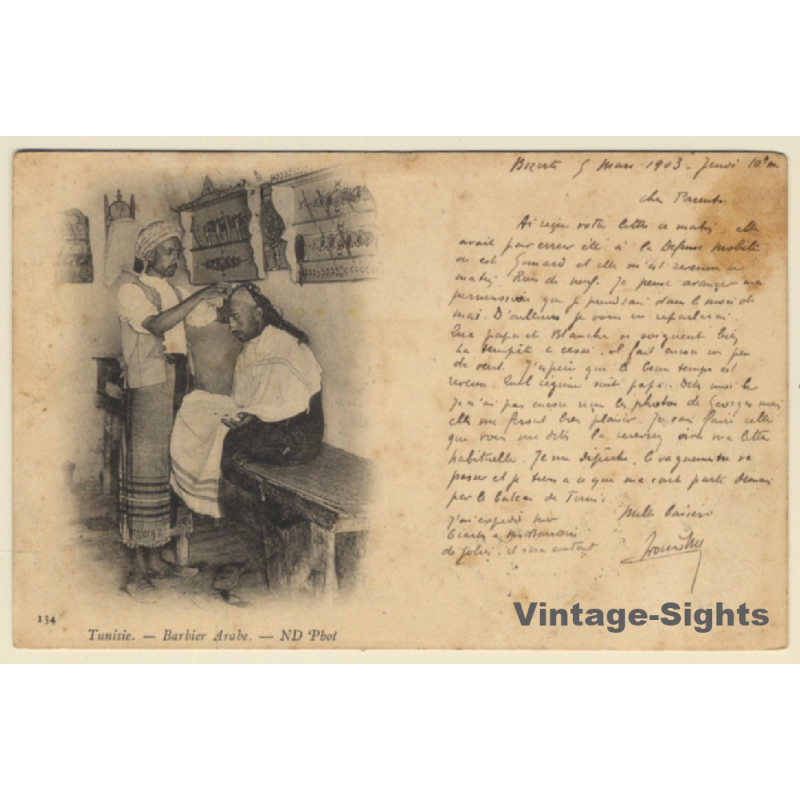 5 Mars 1903 - Jeudi
chers Parents
Ai reçu votre lettre ce matin elle
avait par erreur été à la Défense mobile
ou est et elle m'est revenue ce
matin. Rien de neuf. Je pense arranger
permission que je prendrai dans le mois de
mai. D'ailleurs je vous en reparlerai.
Que papa et Blanche se soignent bien
La tempête a cessé, il fait encore un peu
de vent. J'espère que le beau temps est
revenu. Quel régime suit papa. Dites moi le
Je n'ai pas encore reçu les photos de Georges mais
elles me feront bien plaisir. Je vais faire celle
que vous me dites la avec ma lettre
habituelle. Je me dépêche, le vaguemestre va
passer et je tiens a ce que ma carte parte demain
par le bateau de Tunis.
Mille baisers
J'ai expédié hier
de jolies, il sera content
134
Tunisie. — Barbier Arabe. — ND Phot
Vintage-Sights